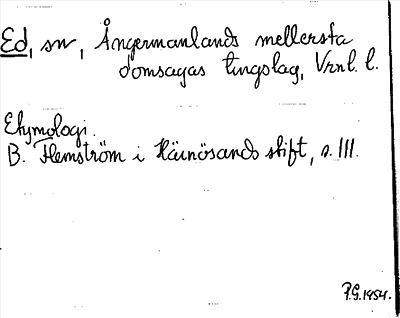 Ed, sn, Ångermanlands mellersta
domsagas tingslag, Vrnl. l.
Etymologi.
B. Flemström i Härnösands stift, s. 111.
P.G. 1954.